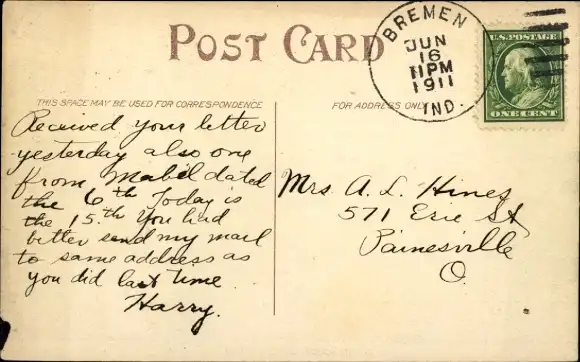 POST CARD
BREMEN
JUN
16
11 PM
1911
IND.
U.S. POSTAGE
ONE CENT
THIS SPACE MAY BE USED FOR CORRESPONDENCE
FOR ADDRESS ONLY
Received your letter
yesterday also one
from Mabel dated
the 6th Today is
the 15.th You had
better send my mail
to same address as
you did last time.
Harry.
Mrs. A. L. Hines
571 Erie St
Painesville
O.